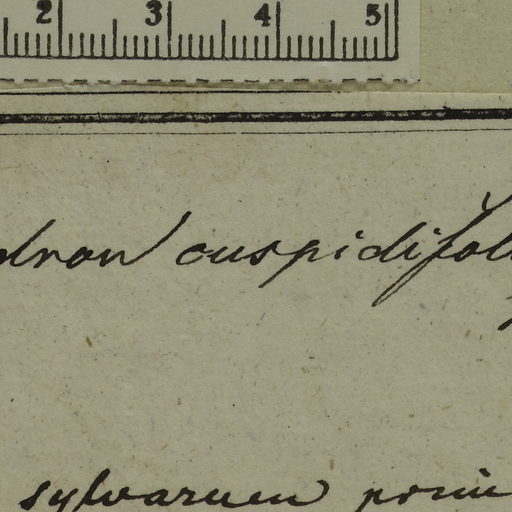 2 3 4 5
dron cuspidifol
sylvarum